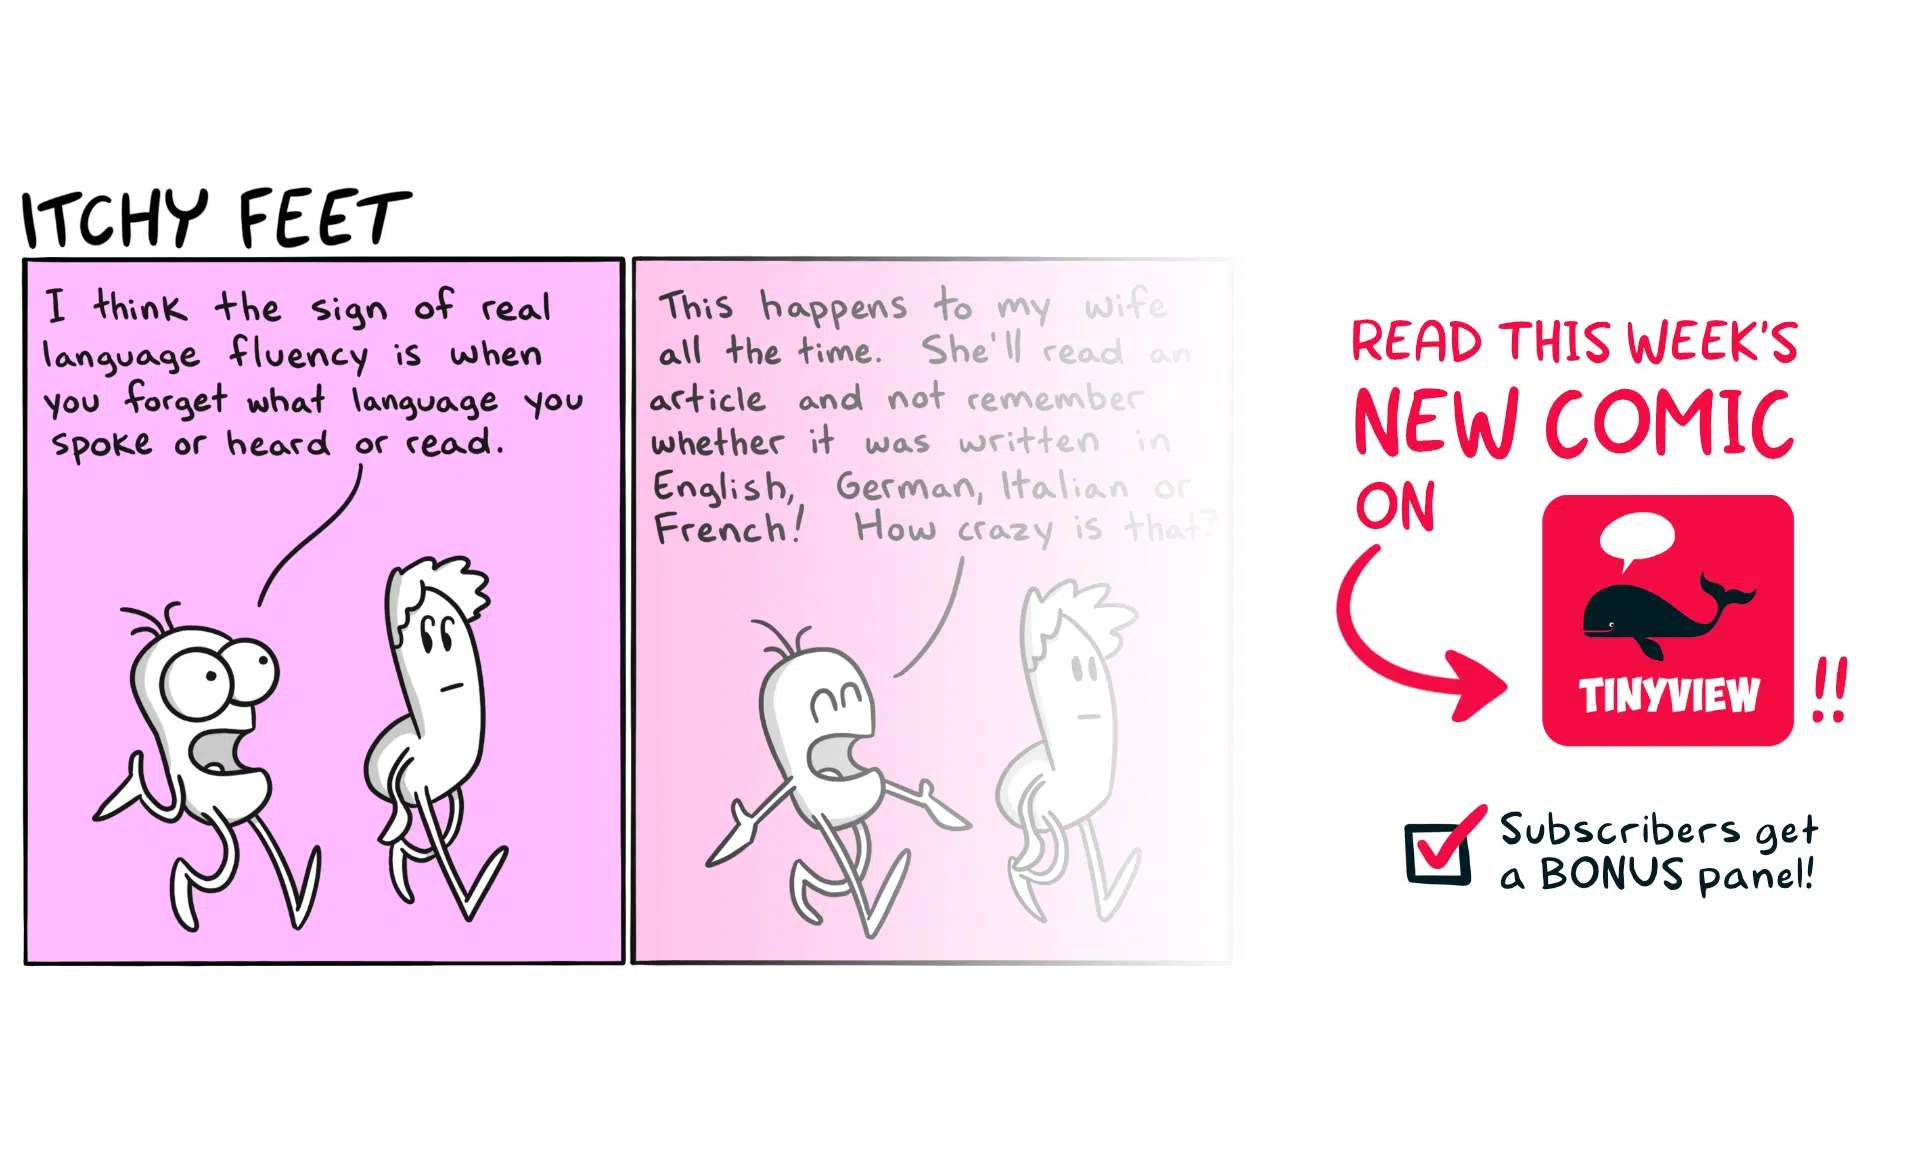 ITCHY FEET
I think the sign of real
language fluency is when
you forget what language you
spoke or heard or read.
This happens to my wife
all the time. She'll read an
article and not remember
whether it was written in
English, German, Italian or
French! How crazy is that?
READ THIS WEEK'S
NEW COMIC
ON
TINYVIEW
!!
Subscribers get
a BONUS panel!